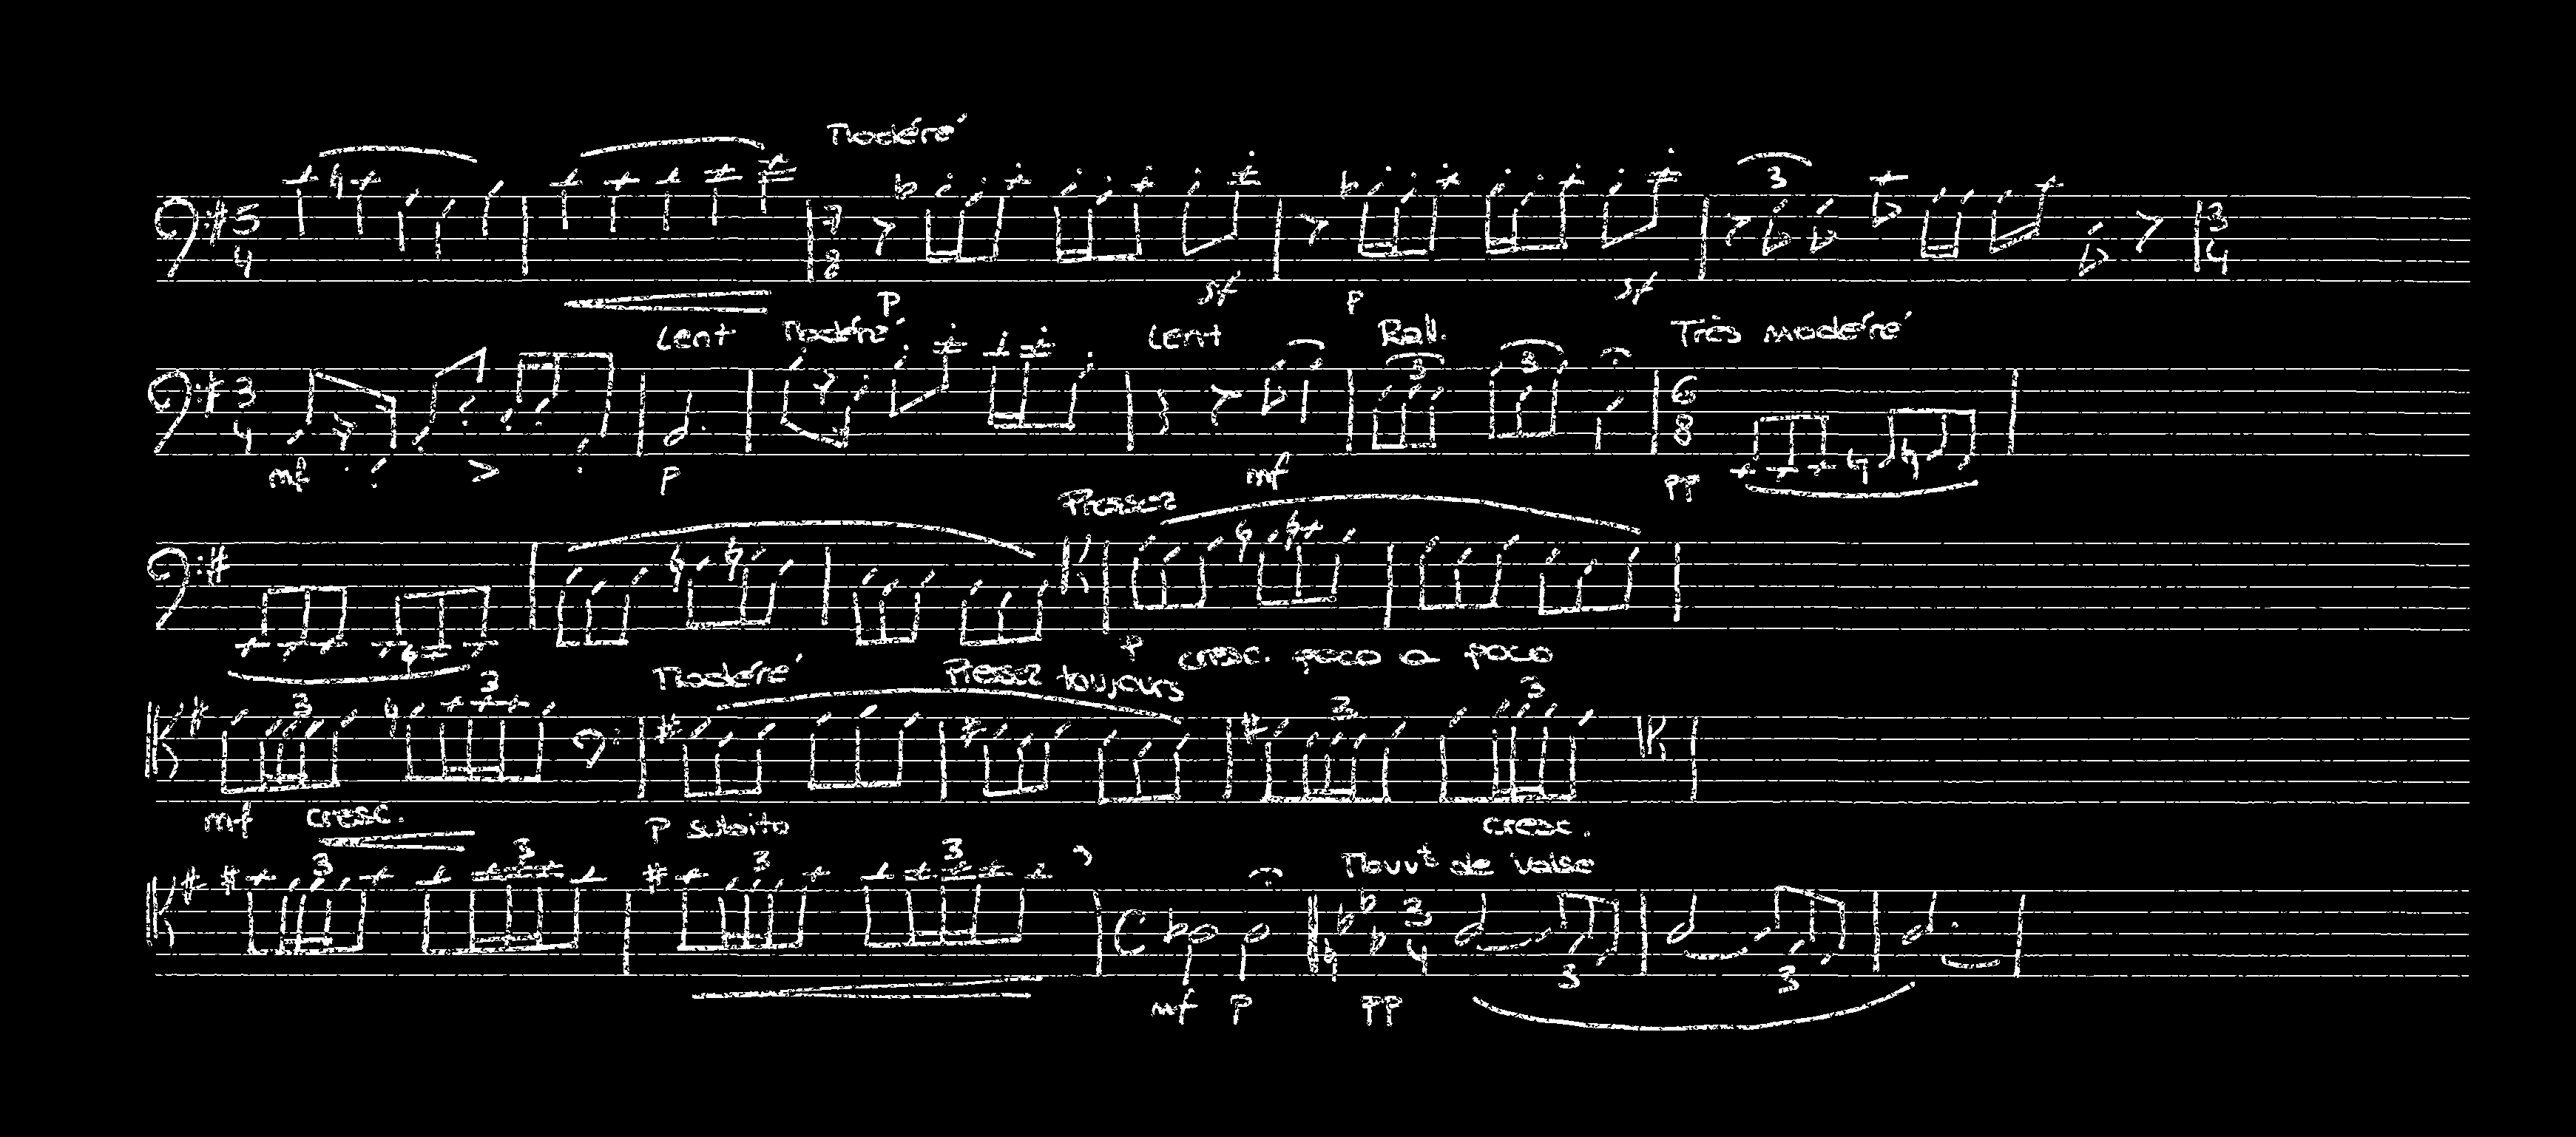 Modéré
5 4 7 8 3 3 4
p sf p sf
Lent Modéré Lent Rall. Très modéré
3 4 3 3 6 8
mf p mf pp
Pressez
p cresc. poco a poco
Modéré Pressez toujours
3 3 3 3
mf cresc. p subito cresc.
Mouvt de Valse
3 3 3 3 3 4 3 3
mf p pp